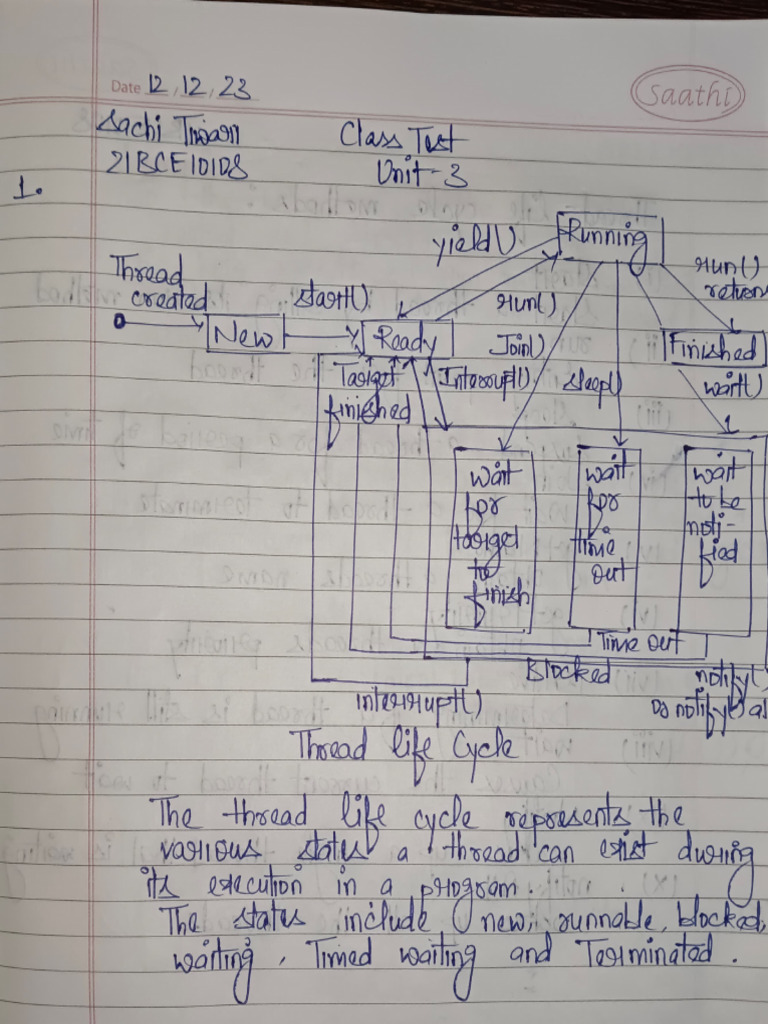 Saathi
Date 12, 12, 23
Sachi Tiwari
Class Test
21BCE10108
Unit-3
1.
yield()
Running
Thread
created
start()
run()
run()
return
New
Ready
Join()
Finished
Target
finished
Interrupt()
sleep()
wait()
wait
for
target
to
finish
wait
for
time
out
wait
to be
noti-
fied
Time out
Blocked
notify()
interrupt()
Or notify() al
Thread life Cycle
The thread life cycle represents the
various states a thread can exist during
its execution in a program.
The states include new, runnable, blocked,
waiting, Timed waiting and Terminated.